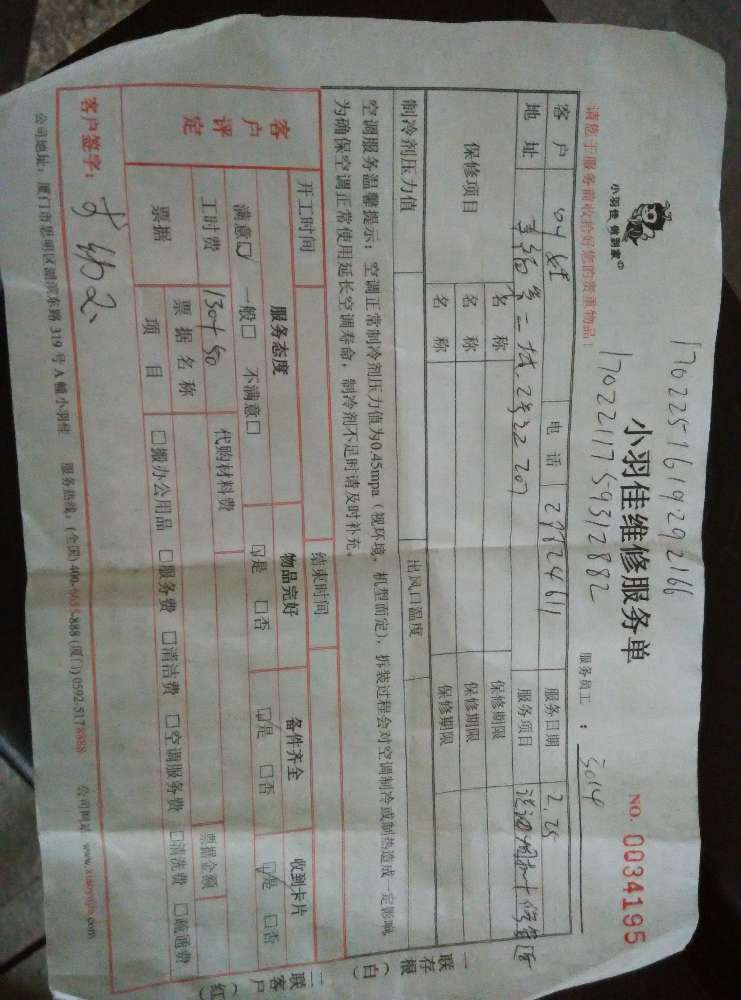 小羽佳 傢到家
1702251619292166
小羽佳维修服务单
NO. 0034195
1702211759312882
请您于服务前收拾好您的贵重物品！
服务员工：3014
客户 电话 29824611 服务日期 2.25
地址 服务项目
保修项目 名称 保修期限
名称 保修期限
名称 保修期限
制冷剂压力值 出风口温度
空调服务温馨提示：空调正常制冷剂压力值为0.45mpa（视环境、机型而定），拆装过程会对空调制冷或制热造成一定影响，
为确保空调正常使用延长空调寿命，制冷剂不足时请及时补充。
一联存根（白）
二联客户（红）
开工时间 结束时间
客户评定 服务态度 物品完好 备件齐全 收到卡片
满意☑ 一般□ 不满意□ ☑是 □否 ☑是 □否 ☑是 □否
工时费 130+50 代购材料费
票据 票据名称 票据金额
项目 □搬办公用品 □服务费 □清洁费 □空调服务费 □清洗费 □疏通费
客户签字：
公司地址：厦门市思明区湖滨东路 319 号 A 幢小羽佳 服务热线：(全国) 400-6655-888 (厦门) 0592-5178888 公司网站：www.xiaoyujia.com